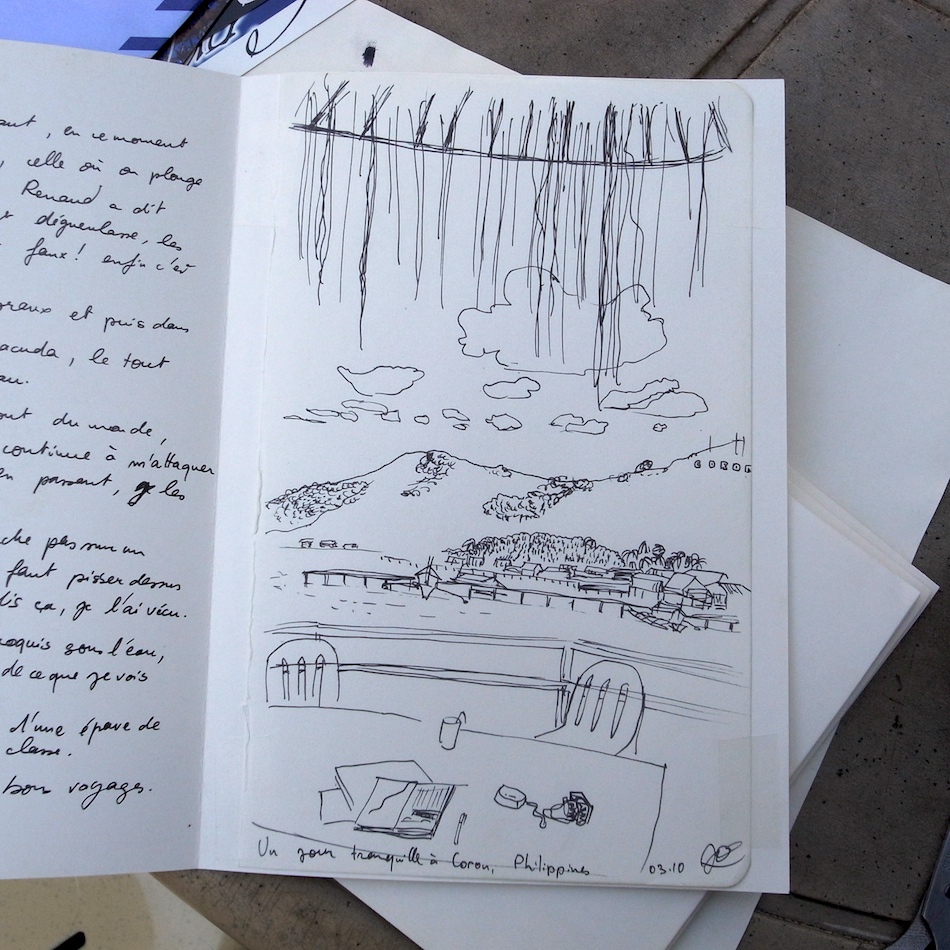 en ce moment
, celle où on plonge
Renaud a dit
dégueulasse, les
faux ! enfin c'est
et puis dans
, le tout
du monde,
continue à m'attaquer
passent, les
pas sur un
faut pisser dessus
ça, je l'ai vécu.
croquis sous l'eau,
de ce que je vois
d'une épave de
classe.
bon voyages.
CORON
Un jour tranquille à Coron, Philippines
03.10